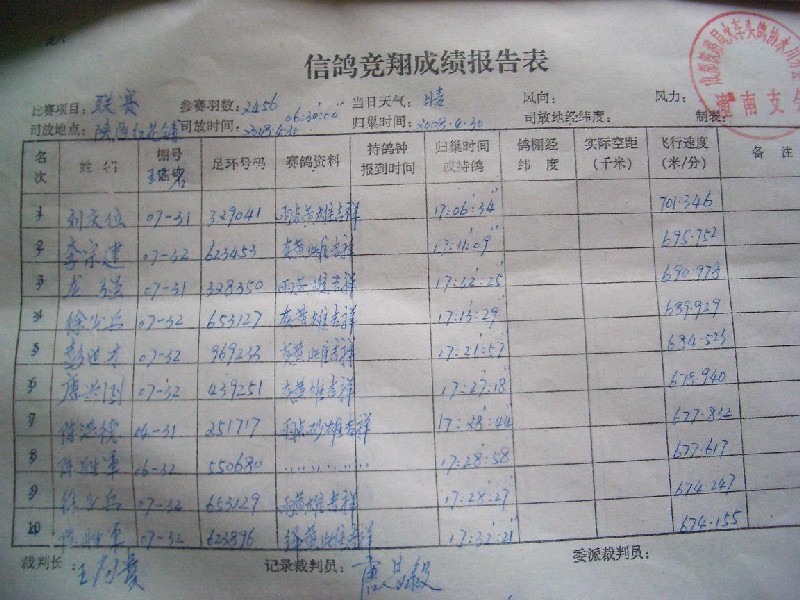 信鸽竞翔成绩报告表
比赛项目：联赛 参赛羽数：2456 当日天气：晴 风向： 风力：
司放地点：陕西 司放时间：2008.4.30 06:30:00 归巢时间：2008.4.30 司放地经纬度： 制表：
名次 姓名 棚号 足环号码 赛鸽资料 持鸽钟报到时间 归巢时间或持鸽 鸽棚经纬度 实际空距(千米) 飞行速度(米/分) 备注
1 07-31 329041 雨点黄雄吉祥 17:06:34 701.346
2 李宗建 07-32 623453 灰黄雄吉祥 17:11:09 695.752
3 龙 07-31 328350 吉祥 17:12:25 690.978
4 徐少兵 07-32 653127 灰黄雄吉祥 17:13:29 689.929
5 彭世才 07-32 969233 灰黄雄吉祥 17:21:57 684.523
6 唐 07-32 439251 灰黄雄吉祥 17:27:18 678.940
7 06-31 251717 雨点砂雄吉祥 17:28:44 677.812
8 06-32 550680 17:28:58 677.617
9 徐少兵 07-32 653129 黄雄吉祥 17:28:27 674.247
10 07-32 623896 绛黄雄吉祥 17:32:21 674.155
裁判长： 记录裁判员： 委派裁判员：